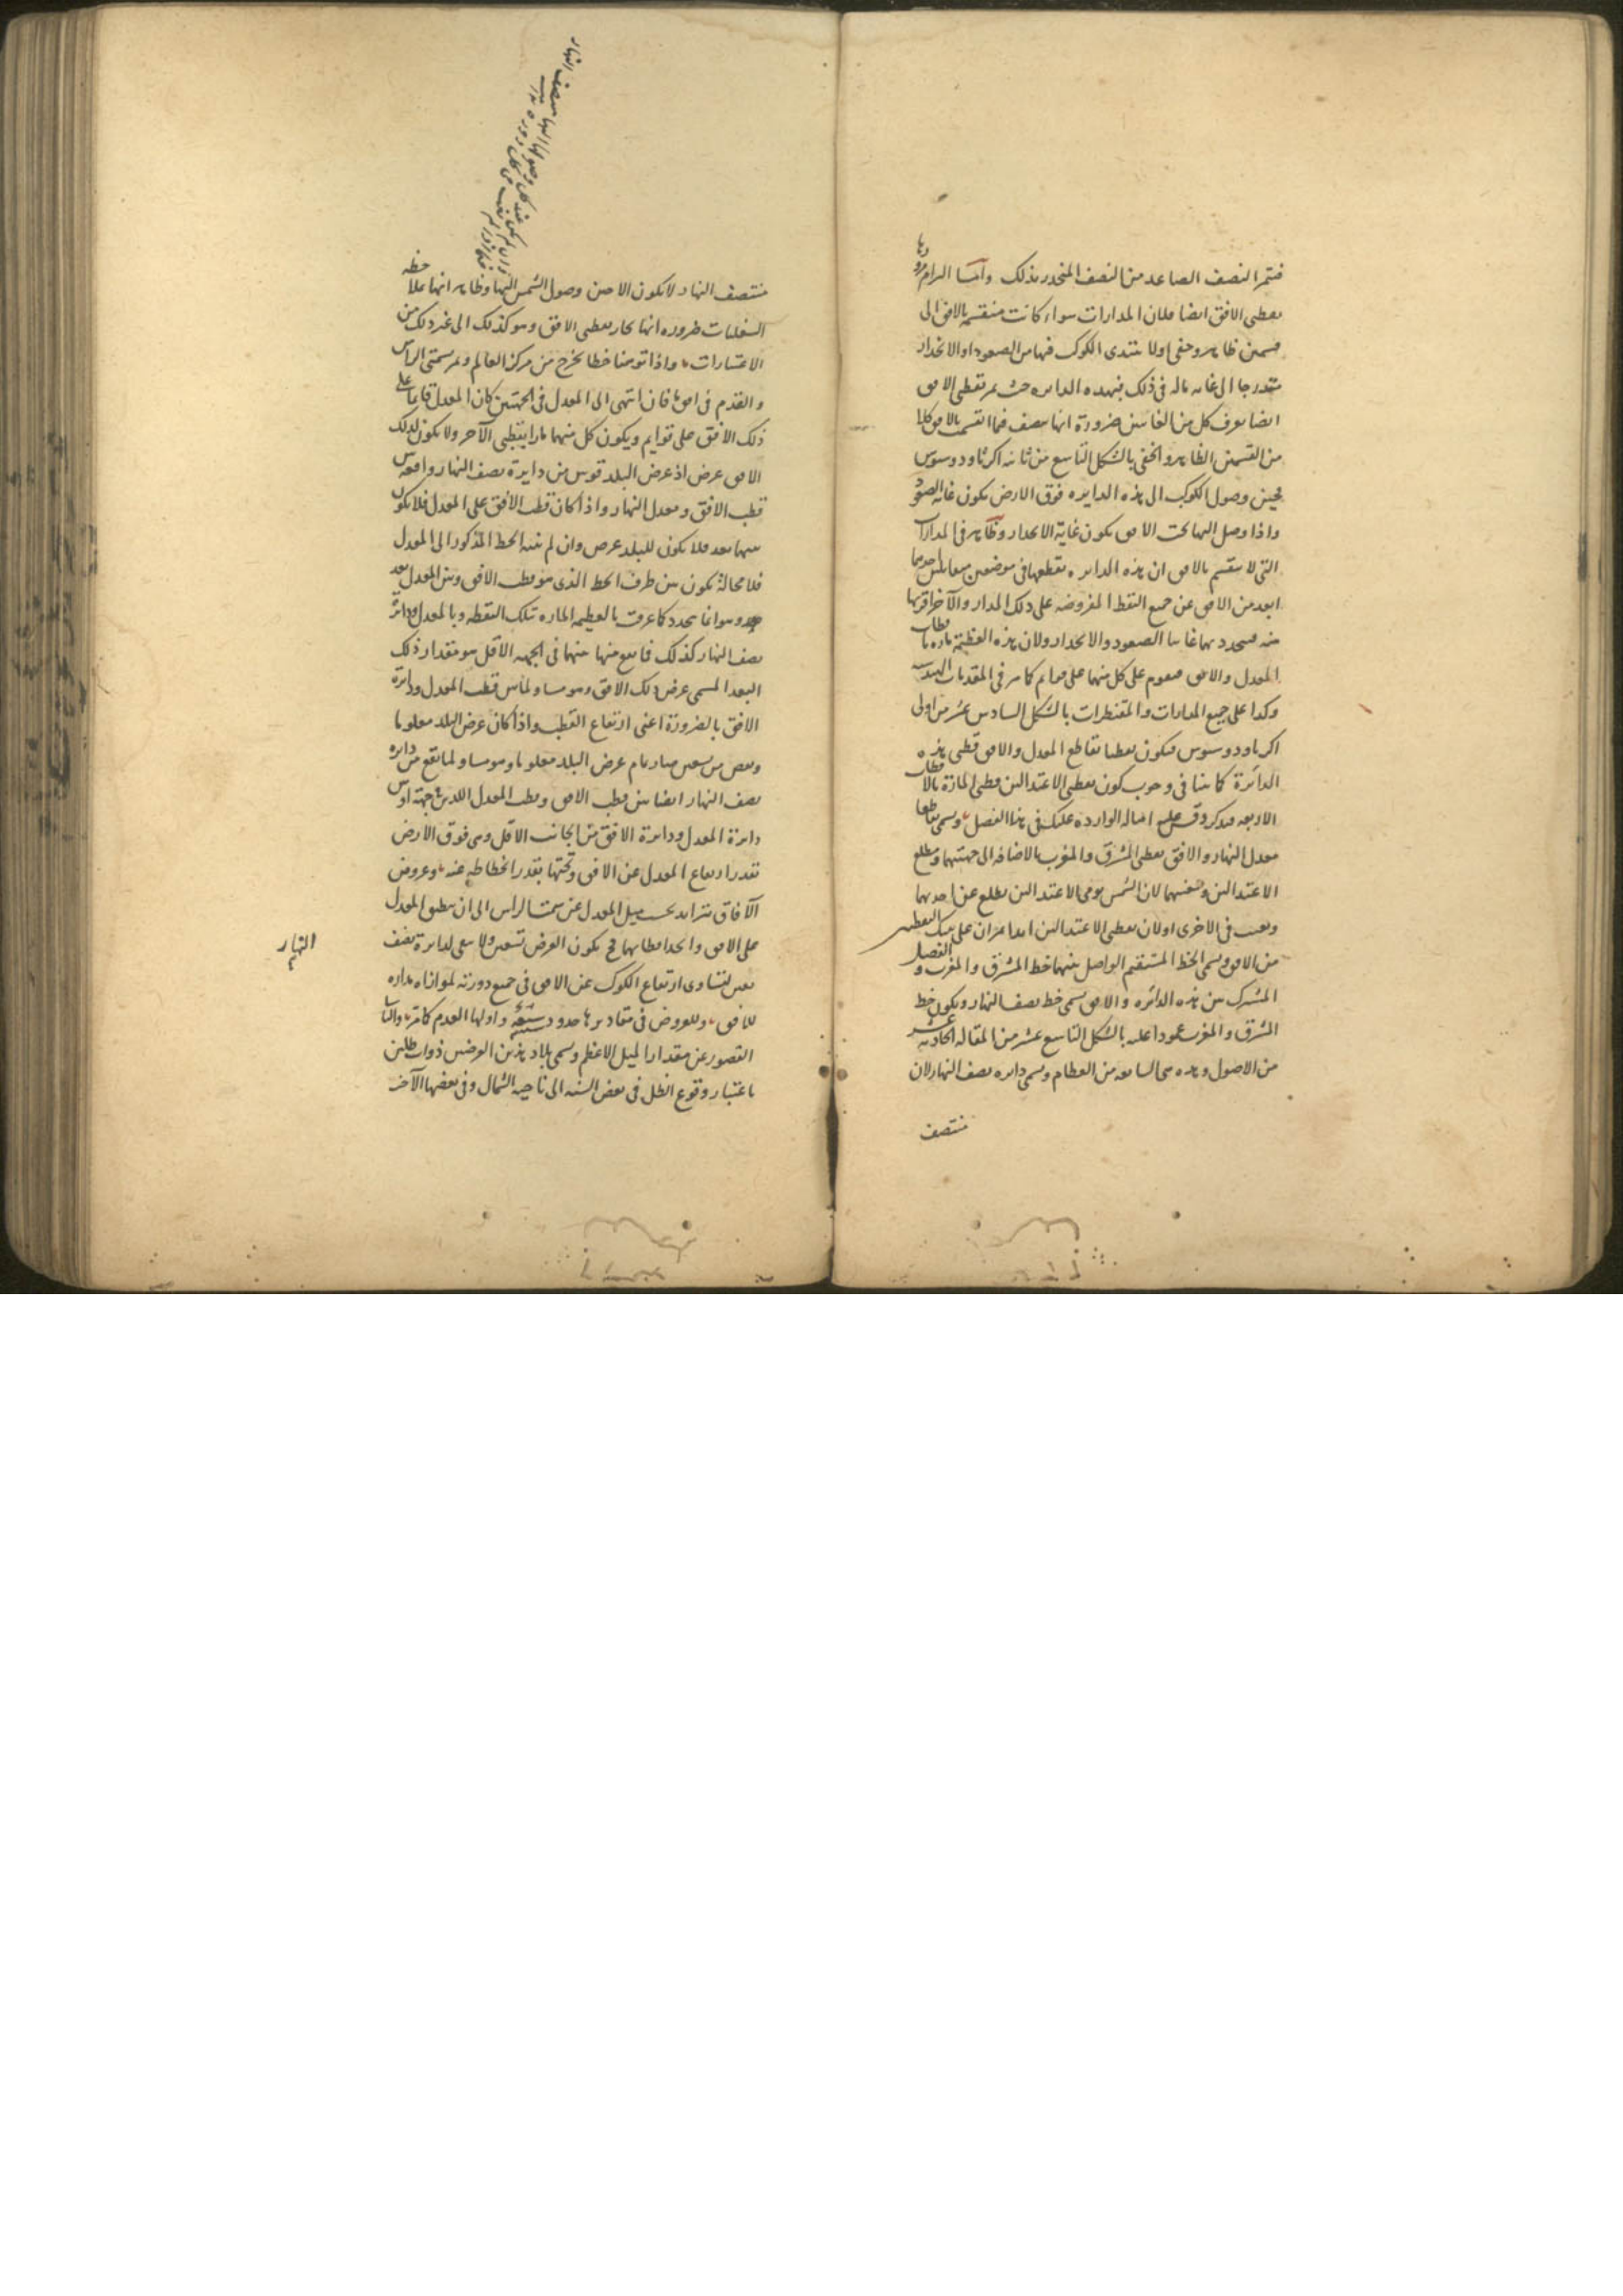 فتميز النصف الصاعد من النصف المنحدر بذلك واما الزام مرورها
بقطبي الافق ايضا فلان المدارات سواء كانت منقسمة بالافق الى
قسمين ظاهر وخفي اولا يبتدى الكوكب فيها من الصعود او الانحدار
متدرجا الى غاية ماله في ذلك فبهذه الدايره حيث يمر بقطبي الافق
ايضا يعرف كل من الغايتين ضرورة انها تنصف فيما انقسم بالافق كلا
من القسمين الظاهر والخفي بالشكل التاسع من ثانيه اكر ثاودوسيوس
فحين وصول الكوكب الى هذه الدايره فوق الارض يكون غاية الصعود
واذا وصل اليها تحت الافق يكون غاية الانحدار وظاهر في المدارات
التي لا تنقسم بالافق ان هذه الدايره تقطعها في موضعين متقابلين احدهما
ابعد من الافق عن جميع النقط المفروضه على ذلك المدار والآخر اقربها
منه فيتحدد بهما غايتا الصعود والانحدار ولان هذه العظيمة مارة باقطاب
المعدل والافق فيقوم على كل منهما على قوايم كما مر في المقدمات الهندسيه
وكذا على جميع المدارات والمقنطرات بالشكل السادس عشر من اولى
اكر ثاودوسيوس فيكون نقطتا تقاطع المعدل والافق قطبي هذه
الدائرة كما بينا في وجوب كون نقطتي الاعتدالين قطبي المارة بالاقطاب
الاربعه فتذكر وقس عليه امثاله الوارده عليك في هذا الفصل ويسمى تقاطعا
معدل النهار والافق نقطتي المشرق والمغرب بالاضافه الى جهتيهما ومطلع
الاعتدالين ومغيبهما لان الشمس يومي الاعتدالين تطلع عن احديهما
وتغيب في الاخرى او لان نقطتي الاعتدالين ابدا يمران على تينك النقطتين
من الافق ويسمى الخط المستقيم الواصل بينهما خط المشرق والمغرب والفصل
المشترك بين هذه الدائره والافق يسمى خط نصف النهار ويكون خط
المشرق والمغرب عمودا عليه بالشكل التاسع عشر من المقاله الحادية عشر
من الاصول وهذه هي السابعه من العظام ويسمى دايره نصف النهار لان
منتصف
منتصف النهار لا يكون الا حين وصول الشمس اليها وظاهر انها بملاحظه
السفليات ضروره انها تمار بقطبي الافق وهو كذلك الى غير ذلك من
الاعتبارات واذا توهمنا خطا يخرج من مركز العالم ويمر بسمتي الراس
والقدم في افق ما فان انتهى الى المعدل في الجهتين كان المعدل قايما على
ذلك الافق على قوايم ويكون كل منهما مارا بقطبي الآخر ولا يكون لذلك
الافق عرض اذ عرض البلد قوس من دايرة نصف النهار واقعة بين
قطب الافق ومعدل النهار واذا كان قطب الافق على المعدل فلا يكون
بينهما بعد فلا يكون للبلد عرض وان لم ينته الخط المذكور الى المعدل
فلا محالة يكون بين طرف الخط الذي هو قطب الافق وبين المعدل بعد
وهو انما يتحدد كما عرفت بالعظيمه الماره بتلك النقطه وبالمعدل ودائرة
نصف النهار كذلك فما يقع منها بينهما في الجهه الاقل هو مقدار ذلك
البعد المسمى عرض ذلك الافق وهو مساو لما بين قطب المعدل ودائرة
الافق بالضرورة اعني ارتفاع القطب واذا كان عرض البلد معلوما
ونقص من تسعين صار تمام عرض البلد معلوما وهو مساو لما يقع من دايره
نصف النهار ايضا بين قطب الافق وقطب المعدل اللذين في جهة او بين
دائرة المعدل ودايرة الافق من الجانب الاقل وهي فوق الارض
بقدر ارتفاع المعدل عن الافق وتحتها بقدر انحطاطه عنه وعروض
الآفاق تتزايد بحسب ميل المعدل عن سمت الراس الى ان ينطبق المعدل
على الافق واتحد قطباهما فح يكون العرض تسعين ولا يبقى لدايرة نصف
تعين لتساوى ارتفاع الكوكب عن الافق في جميع دورته لموازاة مداره
للافق وللعروض في مقاديرها حدود سبعة واولها العدم كما مر والثاني
القصور عن مقدار الميل الاعظم ويسمى بلاد هذين العرضين ذوات ظلين
باعتبار وقوع الظل في بعض السنه الى ناحية الشمال وفي بعضها الآخر
النهار